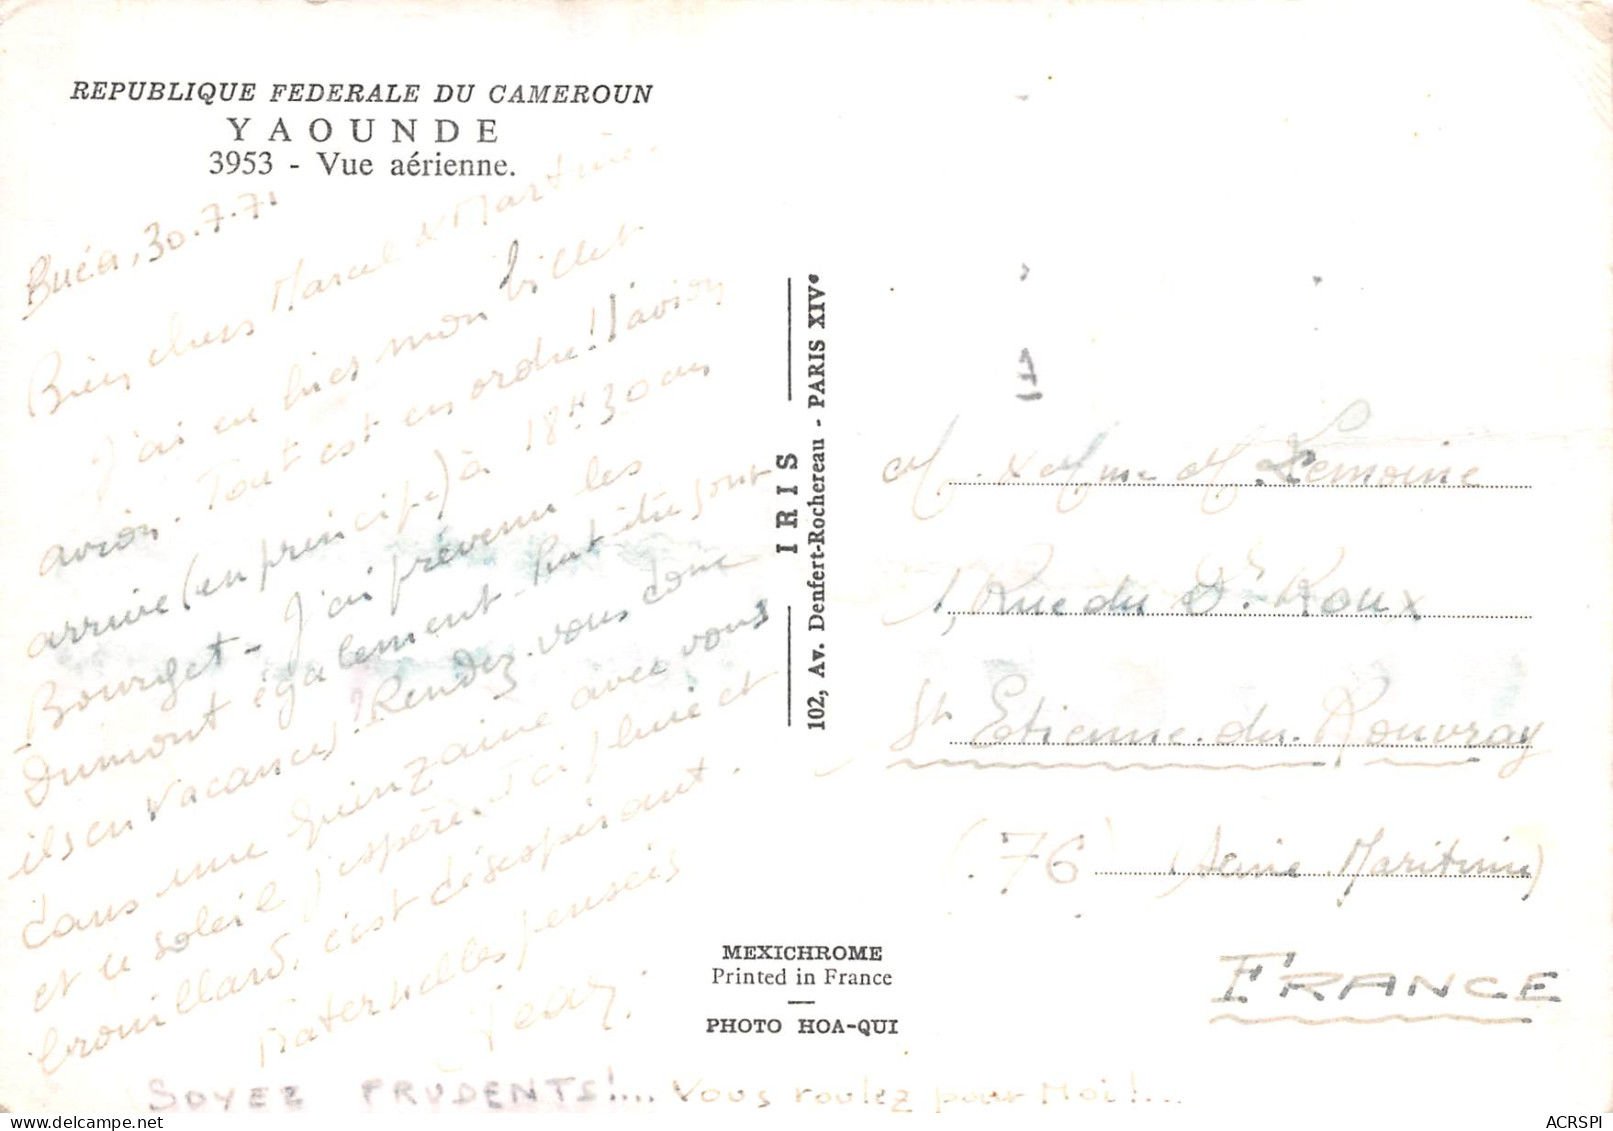 REPUBLIQUE FEDERALE DU CAMEROUN
YAOUNDE
3953 - Vue aérienne.
Buéa, 30.7.71
Bien chers Marcel & Martine.
J'ai eu hier mon billet
avion. Tout est en ordre! l'avion
arrive (en principe) à 18H30 au
Bourget - J'ai prévenu les
Dumont également - Peut être sont
ils en vacances. Rendez-vous donc
dans une quinzaine avec vous
et le soleil j'espère. Ici pluie et
brouillard. c'est désespérant.
Fraternelles pensées
Jean.
SOYEZ PRUDENTS!... Vous roulez pour Moi!...
IRIS
102, Av. Denfert-Rochereau - PARIS XIVe
M. & Mme M Lemoine
1, Rue du Dr Roux
St Etienne. du. Rouvray
(76) (Seine Maritime)
FRANCE
MEXICHROME
Printed in France
PHOTO HOA-QUI
ACRSPI